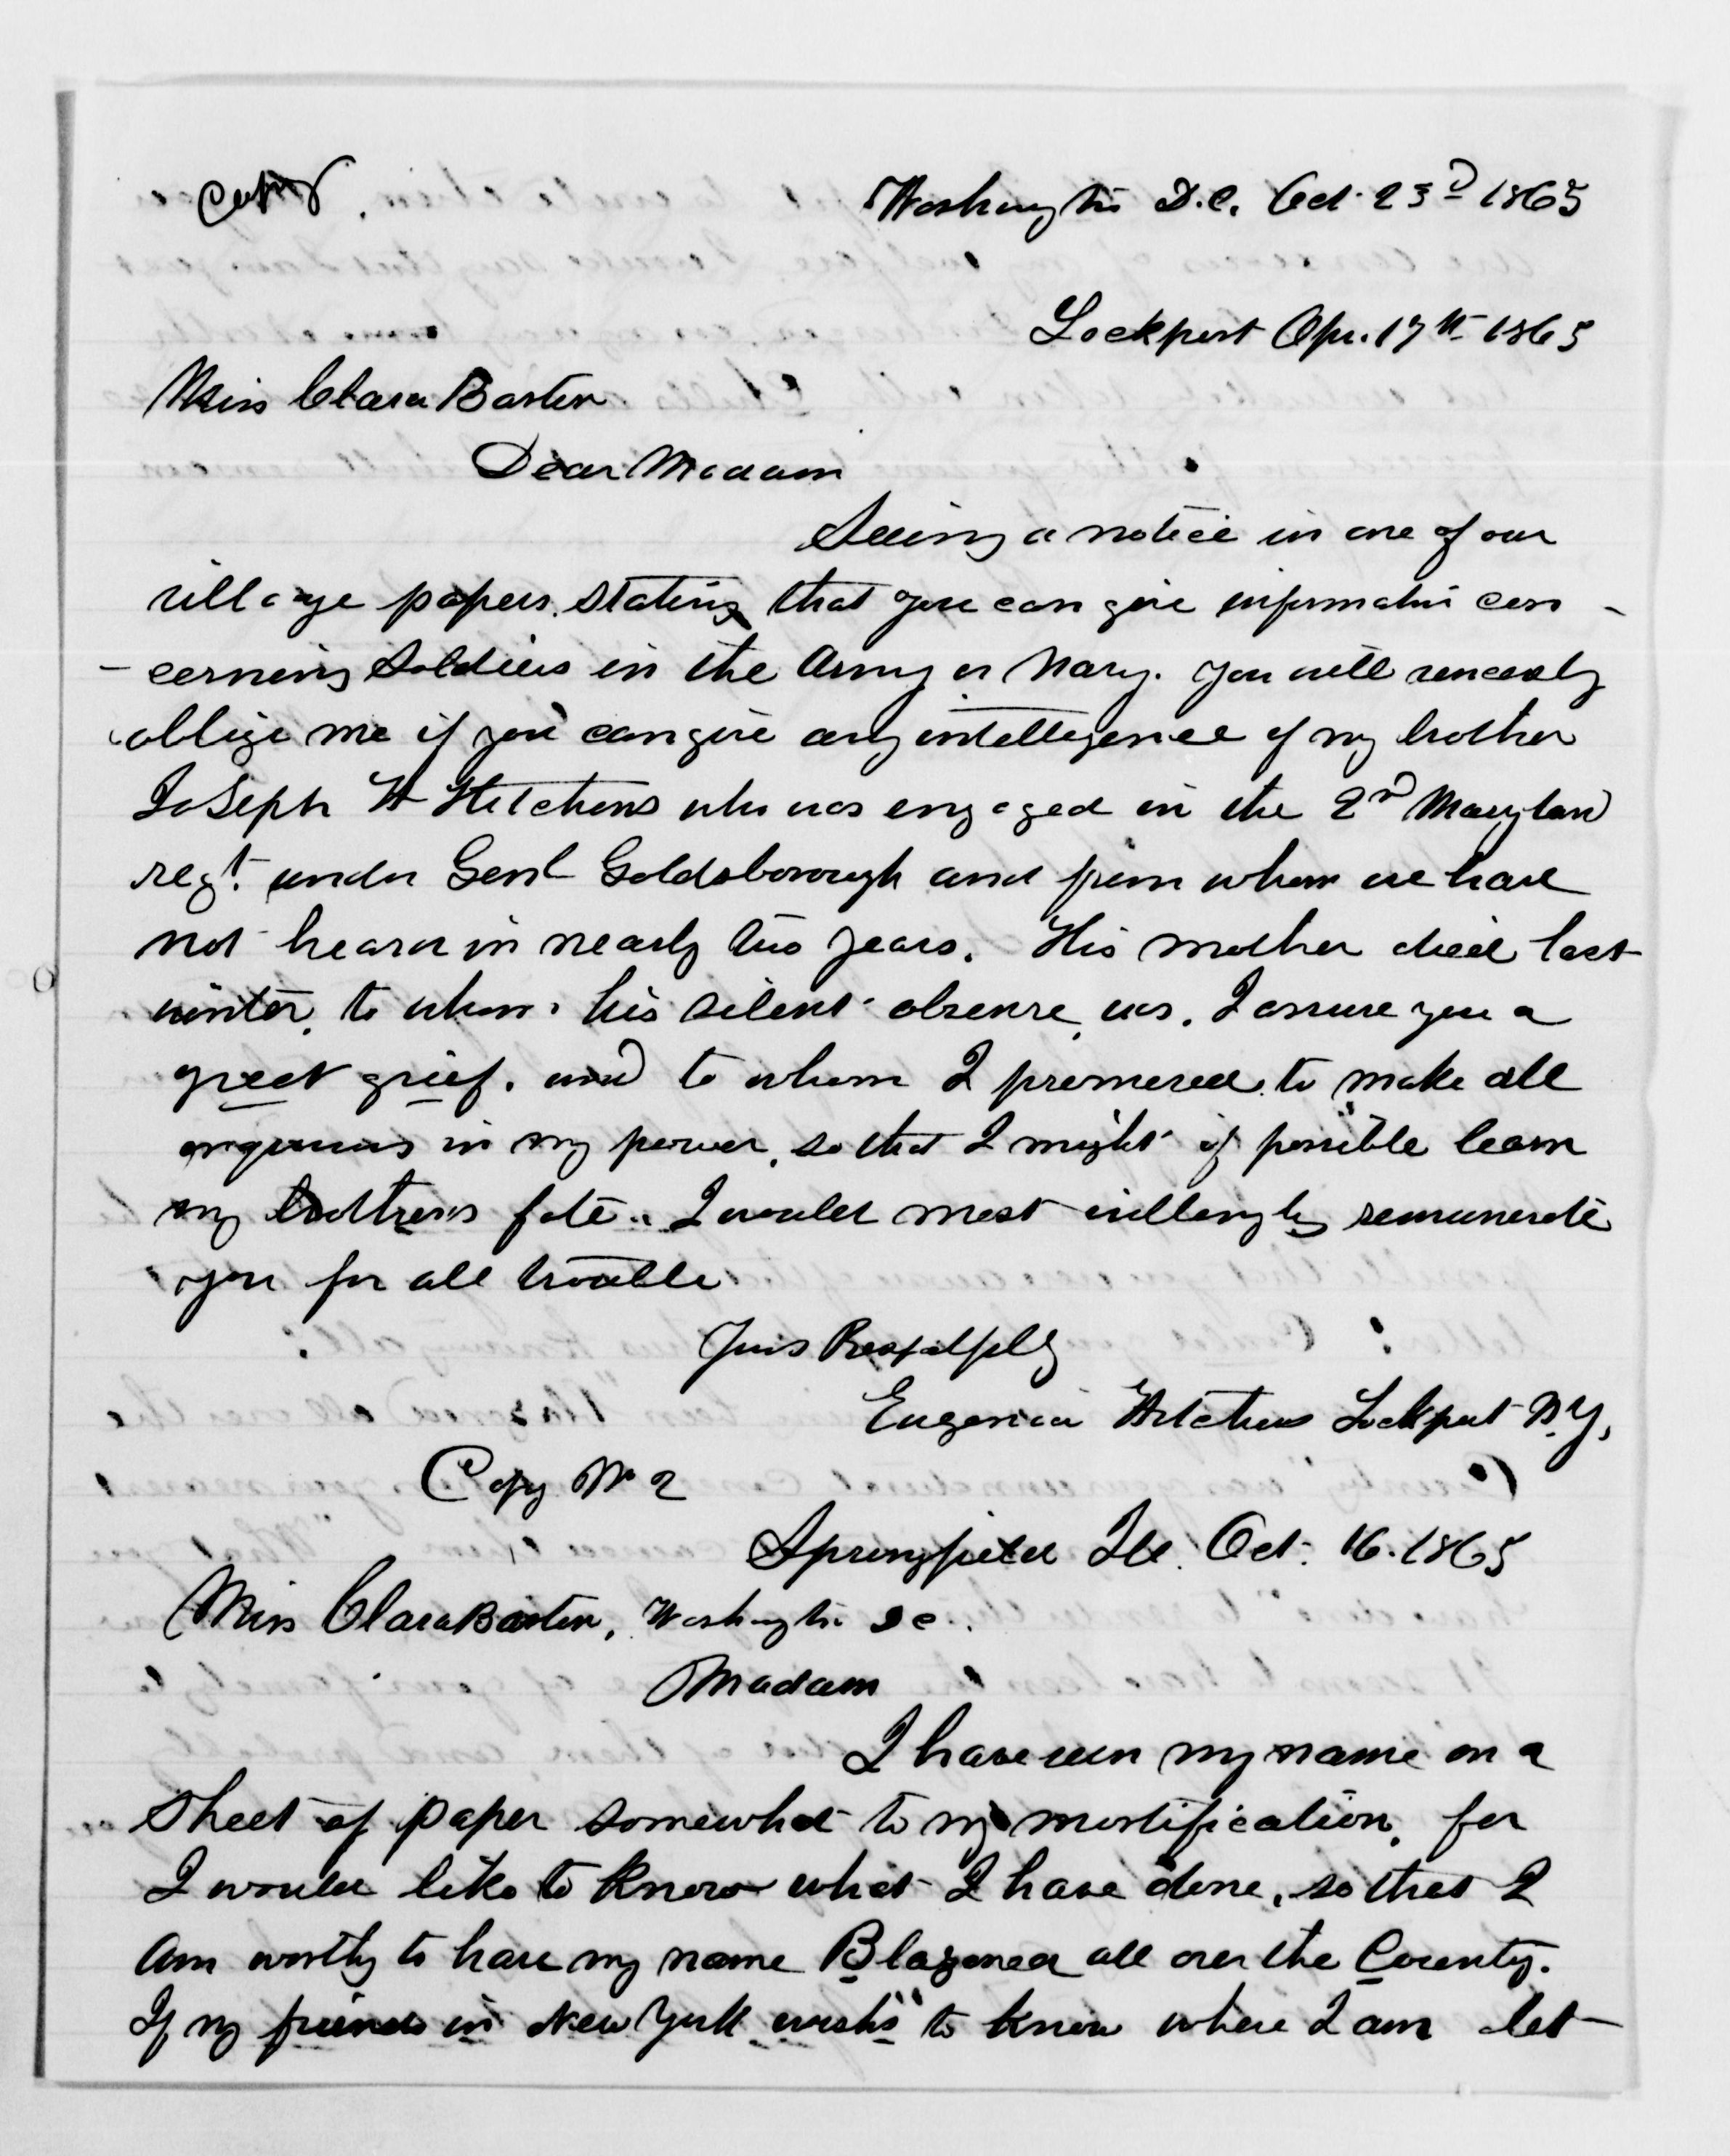 Copy.
Washington D.C. Oct. 23d 1865
Lockport Apr. 17th 1865
Miss Clara Barton
Dear Madam
Seeing a notice in one of our
village papers, stating that you can give information con-
-cerning Soldiers in the Army or Navy. You will sincerely
oblige me if you can give any intellegence of my brother
Joseph H Hitchens who was engaged in the 2d Maryland
regt. under Genl Goldsborough and from whom we have
not heard in nearly two years. His mother died last
winter, to whom, his silent absence, was, I assure you a
great grief. and to whom I promised to make all
enquiries in my power, so that I might if possible learn
my brothers fate. I would most willingly remunerate
you for all trouble
Yours Respectfully
Eugenia Hitchens Lockport N.Y.
Copy No 2
Springfield Ill. Oct. 16. 1865
Miss Clara Barton, Washington D C.
Madam
I have seen my name on a
Sheet of paper somewhat to my mortification, for
I would like to know what I have done, so that I
Am worthy to have my name Blazoned all over the County.
If my friends in New York wishs to know where I am let